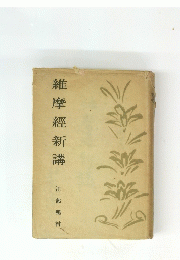 維摩經新講